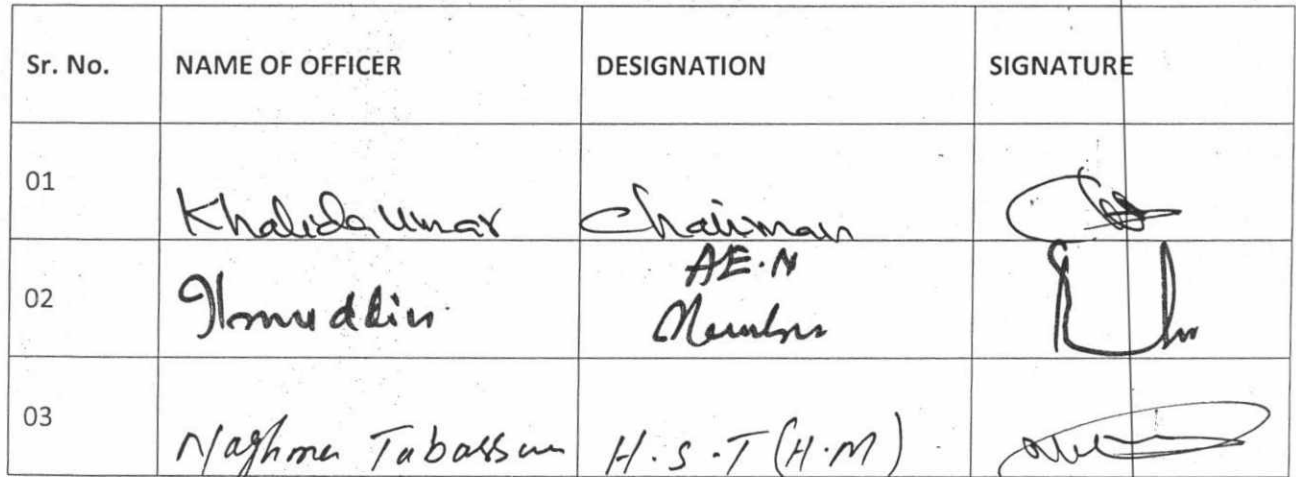 Sr. No. NAME OF OFFICER DESIGNATION SIGNATURE
01 Khalida Umar Chairman
AE.N
02 Ilmuddin Member
03 Naghma Tabassum H.S.T (H.M)